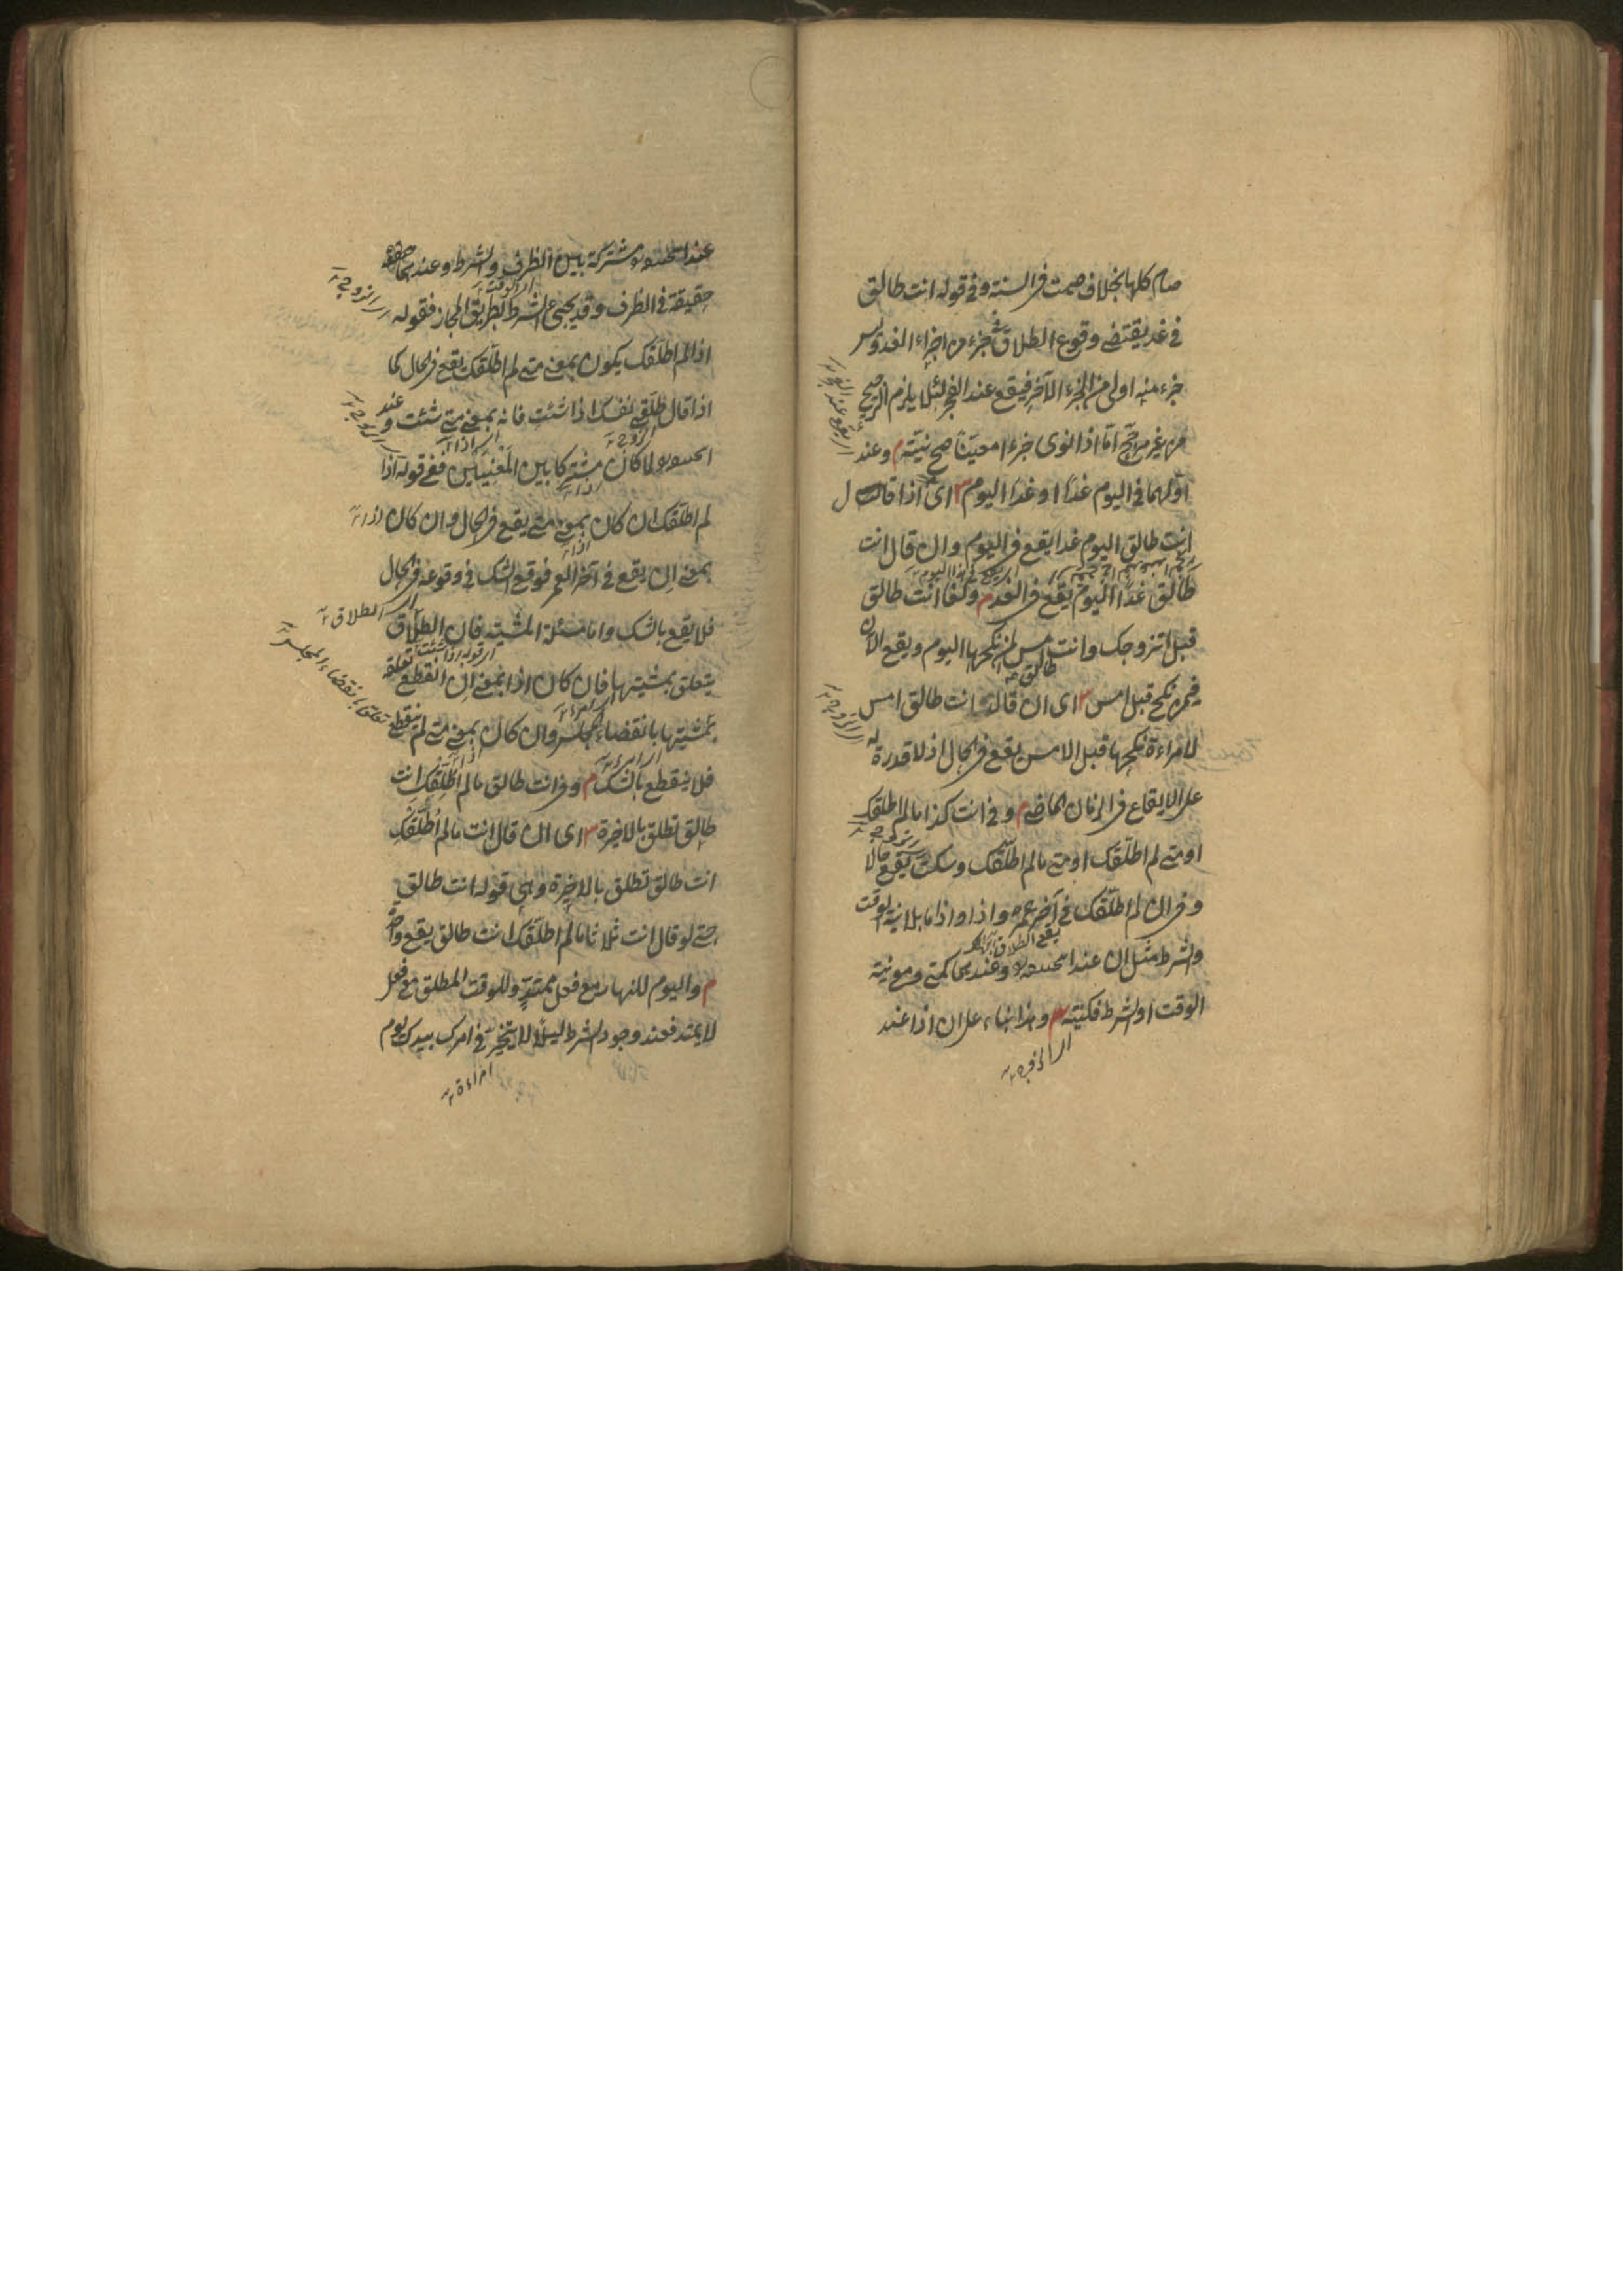 صام كلها بخلاف صمت فى السنة وفى قوله انت طالق
فى غد يقتضى وقوع الطلاق فى جزء من اجزاء الغد وليس
جزء منه اولى من الجزء الآخر فيقع عند الفجر لئلا يلزم الترجيح
من غير مرجح اما اذا نوى جزءا معينا صح نيته م وعند
اولهما فى اليوم غدا او غدا اليوم ش اى اذا قال
انت طالق اليوم غدا يقع فى اليوم وان قال انت
طالق غدا اليوم يقع فى الغد م ولغا انت طالق
قبل اتزوجك وانت طالق امس لمن نكحها اليوم ويقع الآن
فيمن نكح قبل امس ش اى ان قال انت طالق امس
لامراءة نكحها قبل الامس يقع فى الحال اذ لا قدرة له
على الايقاع فى الزمان الماضى م وفى انت كذا ما لم اطلقك
او متى لم اطلقك او متى ما لم اطلقك وسكت يقع حالا
وفى ان لم اطلقك فى آخر عمره واذا واذا ما بلا نية الوقت
يقع الطلاق
والشرط مثل ان عند ابيحنيفة وعندهما كمتى ومع نية
الوقت او الشرط فكنيته ش وهذا بناء على ان اذا عند
عند ابيحنيفة مشتركة بين الظرف والشرط وعندهما
حقيقة فى الظرف وقد يجئ للشرط بطريق المجاز فقوله
اى الزوج
اذا لم اطلقك يكون بمعنى متى لم اطلقك يقع فى الحال كما
اذا قال طلقى نفسك اذا شئت فانه بمعنى متى شئت وعند
ابيحنيفة لما كان مشتركا بين المعنيين ففى قوله اذا
لم اطلقك ان كان بمعنى متى يقع فى الحال وان كان
بمعنى ان يقع فى آخر العمر فوقع الشك فى وقوعه فى الحال
فلا يقع بالشك واما مسئلة المشية فان الطلاق
اى الطلاق
اى قوله اذا شئت
يتعلق بمشيتها فان كان اذا بمعنى ان انقطع تعلقه
تعلق بانقضاء المجلس
بمشيتها بانقضاء المجلس وان كان بمعنى متى لم ينقطع
فلا ينقطع بالشك م وفى انت طالق ما لم اطلقك انت
طالق تطلق بالاخيرة ش اى ان قال انت ما لم اطلقك
انت طالق تطلق بالاخيرة وهى قوله انت طالق
حتى لو قال انت ثلاثا ما لم اطلقك انت طالق يقع واحدة
م واليوم للنهار مع فعل ممتد وللوقت المطلق مع فعل
لا يمتد فعند وجود الشرط ليلا لا تتخير فى امرك بيدك يوم
امراءة